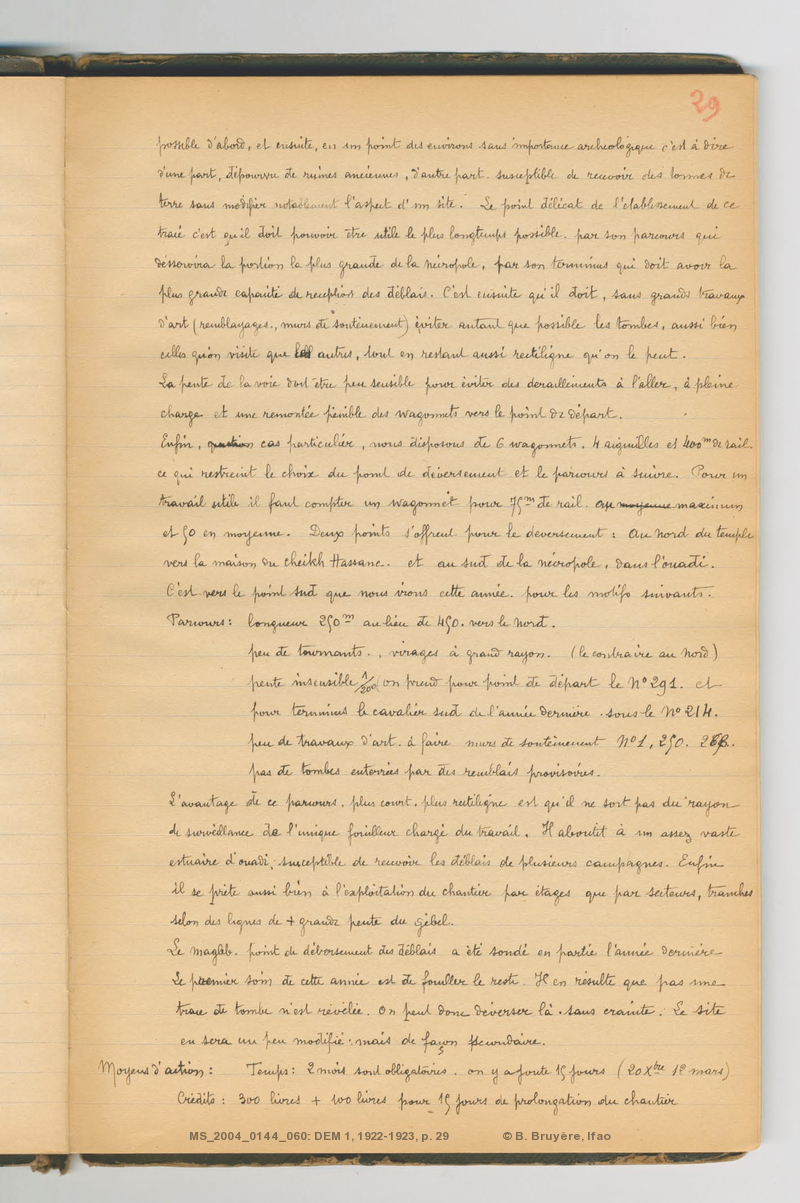 29
possible d'abord, et ensuite, en un point des environs sans importance archéologique c'est à dire
d'une part, dépourvu de ruines anciennes, d'autre part. susceptible de recevoir des tonnes de
terre sans modifier notablement l'aspect d'un site. Le point délicat de l'établissement de ce
tracé c'est qu'il doit pouvoir être utile le plus longtemps possible. par son parcours qui
desservira la portion la plus grande de la nécropole, par son terminus qui doit avoir la
plus grande capacité de réception des déblais. C'est ensuite qu'il doit, sans grands travaux
d'art (remblayages, murs de soutènement) éviter autant que possible les tombes, aussi bien
celles qu'on visite que les autres, tout en restant aussi rectiligne qu'on le peut.
La pente de la voie doit être peu sensible pour éviter des deraillements à l'aller, à pleine
charge et une remontée pénible des wagonnets vers le point de départ.
Enfin, question cas particulier, nous disposons de 6 wagonnets. 4 aiguilles et 400m de rail.
ce qui restreint le choix du point de déversement et le parcours à suivre. Pour un
travail utile il faut compter un wagonnet pour 75m de rail. au moyenne maximum
et 50 en moyenne. Deux points s'offrent pour le déversement : au Nord du temple
vers la maison du cheikh Hassane. et au sud de la nécropole, dans l'ouadi.
C'est vers le point sud que nous irons cette année. pour les motifs suivants.
Parcours : longueur 250m au lieu de 450. vers le Nord.
peu de tournants., virages à grand rayon. (le contraire au Nord)
pente insensible 1/200 on prend pour point de départ le N° 291. et
pour terminus le cavalier sud de l'année dernière. sous le N° 214.
peu de travaux d'art. à faire murs de soutènement N° 1, 250.
pas de tombes enterrées par des remblais provisoires.
L'avantage de ce parcours. plus court. plus rectiligne est qu'il ne sort pas du rayon
de surveillance de l'unique fouilleur chargé du travail. Il aboutit à un assez vaste
estuaire d'ouadi, susceptible de recevoir les déblais de plusieurs campagnes. Enfin
il se prête aussi bien à l'exploitation du chantier par étages que par secteurs, tranches
selon des lignes de + grande pente du gebel.
Le maglab. point de déversement des déblais a été sondé en partie l'année dernière
Le premier soin de cette année est de fouiller le reste. Il en résulte que pas une
trace de tombe n'est révélée. On peut donc déverser là. sans crainte. Le site
en sera un peu modifié. mais de façon secondaire.
Moyens d'action : Temps : 2 mois sont obligatoires. on y ajoute 15 jours (20 Xbre 1er mars)
Crédits : 300 livres + 100 livres pour 15 jours de prolongation du chantier
MS_2004_0144_060: DEM 1, 1922-1923, p. 29 © B. Bruyère, Ifao